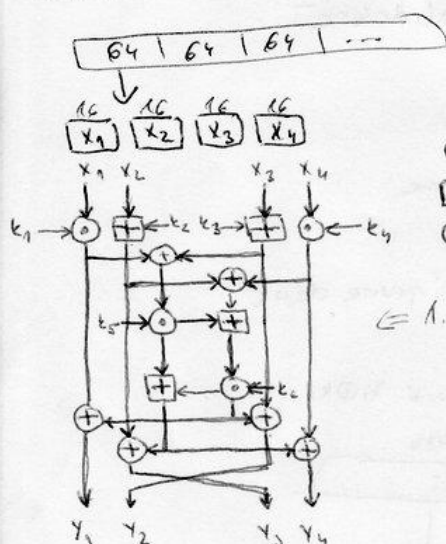 64 | 64 | 64 | ...
16 16 16 16
X1 X2 X3 X4
X1 X2 X3 X4
k1 k2 k3 k4
k5
k6
⇐ 1.
Y1 Y2 Y3 Y4